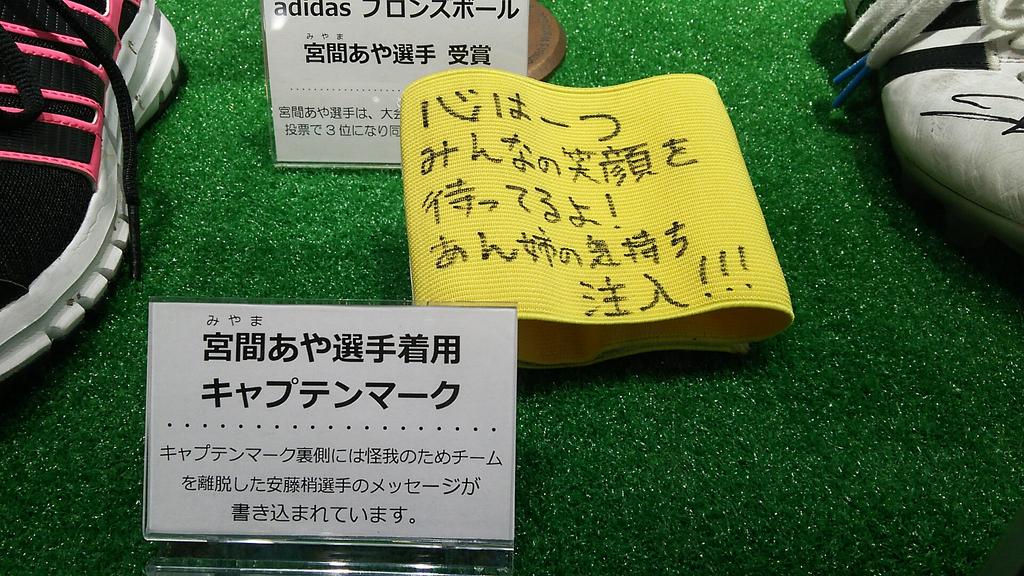 adidas ブロンズボール
みやま
宮間あや選手 受賞
宮間あや選手は、大会
投票で3位になり同
心は一つ
みんなの笑顔を
待ってるよ!
あん姉の気持ち
注入!!!
みやま
宮間あや選手着用
キャプテンマーク
キャプテンマーク裏側には怪我のためチーム
を離脱した安藤梢選手のメッセージが
書き込まれています。